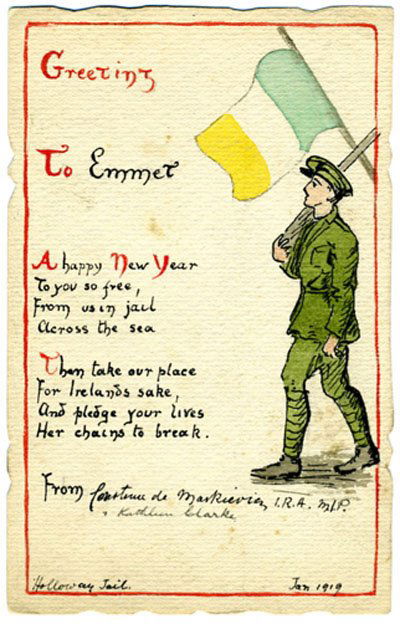 Greeting
To Emmet
A happy New Year
To you so free,
From us in jail
Across the sea
Then take our place
For Irelands sake,
And pledge your lives
Her chains to break.
From Constance de Markievicz I.R.A. M.P.
& Kathleen Clarke
Holloway Jail. Jan 1919